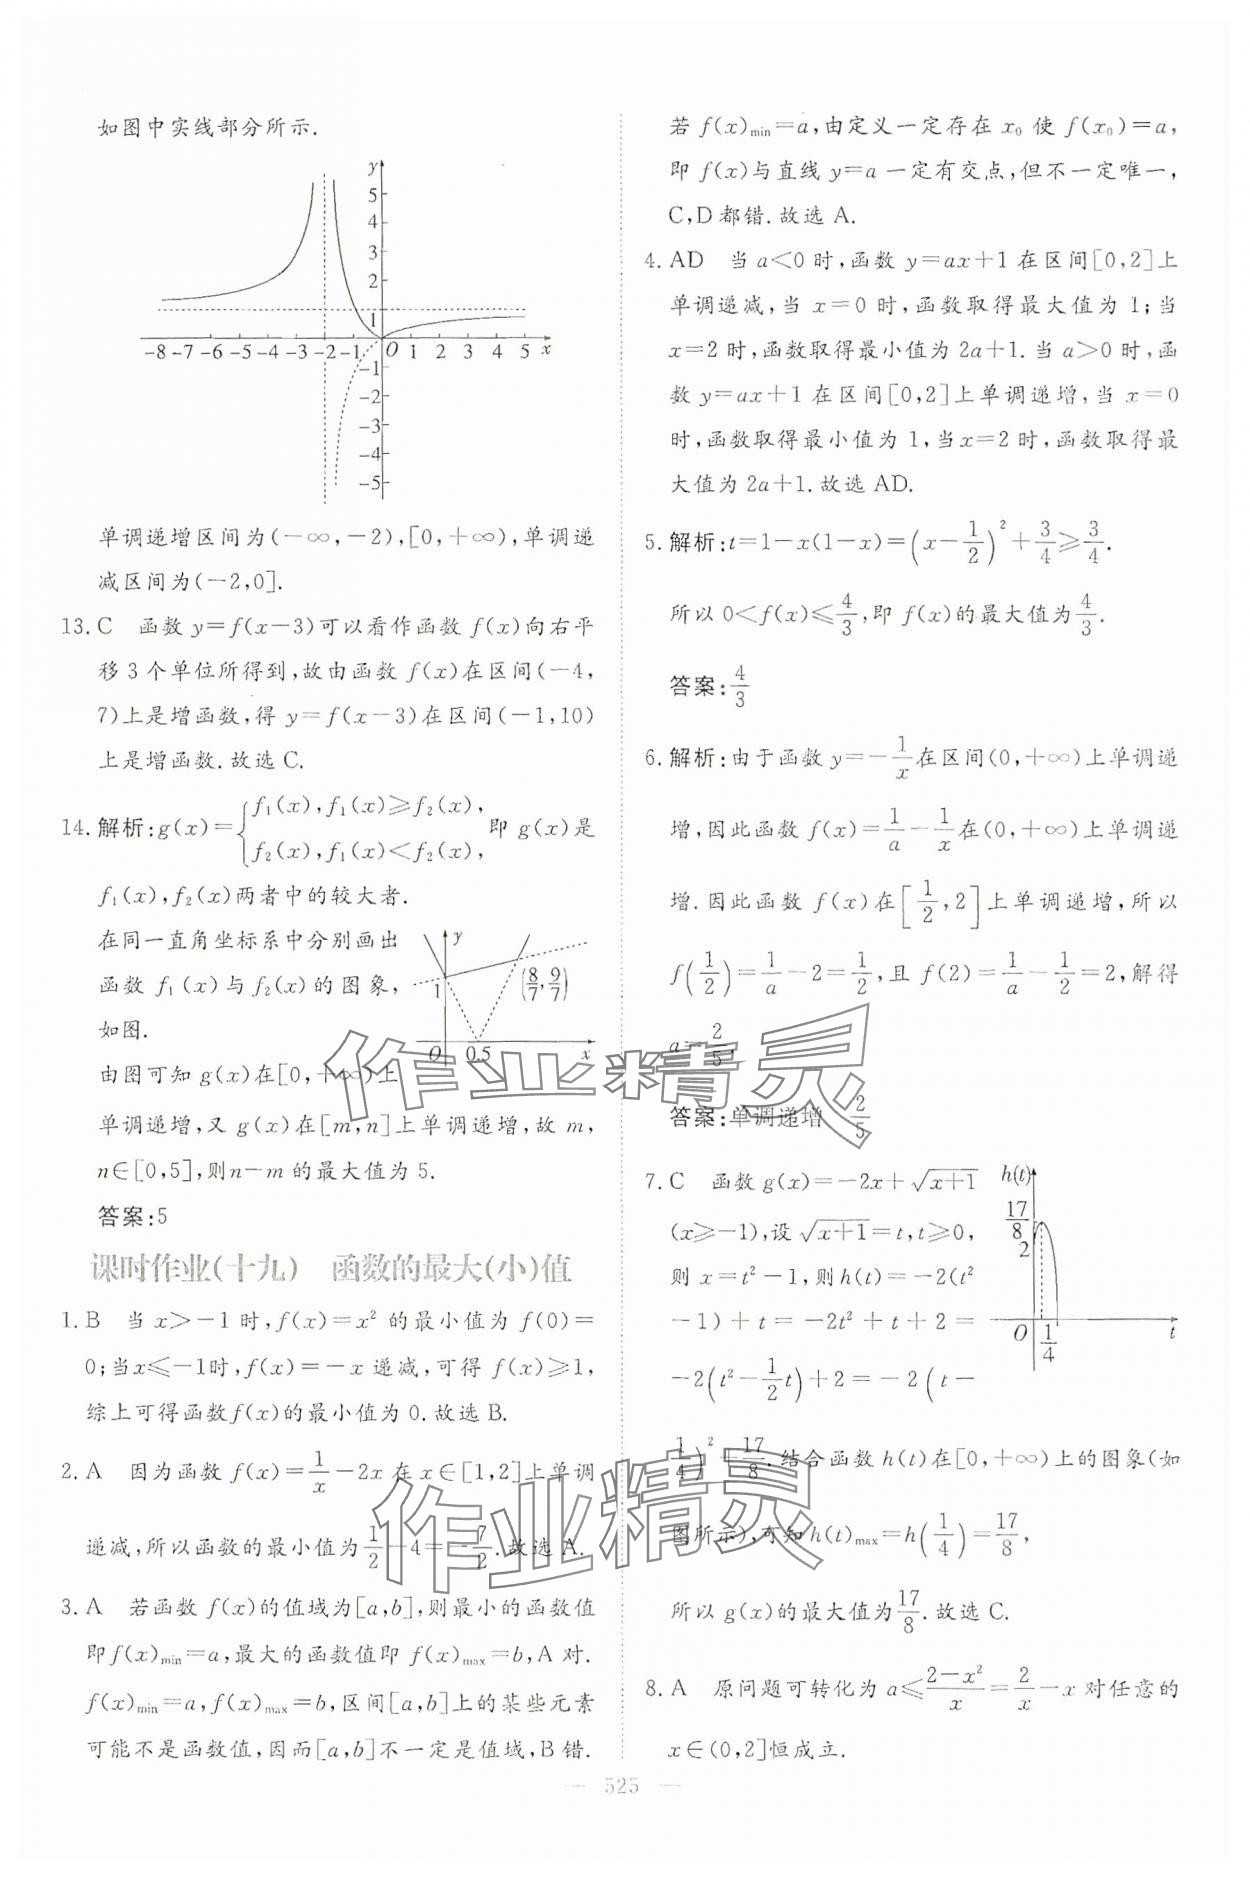 如图中实线部分所示.
y
5
4
3
2
1
-8 -7 -6 -5 -4 -3 -2 -1 O 1 2 3 4 5 x
-1
-2
-3
-4
-5
单调递增区间为(-∞,-2),[0,+∞),单调递
减区间为(-2,0].
13. C 函数 y=f(x-3)可以看作函数 f(x)向右平
移 3 个单位所得到,故由函数 f(x)在区间(-4,
7)上是增函数,得 y=f(x-3)在区间(-1,10)
上是增函数.故选 C.
14. 解析:g(x)={f₁(x),f₁(x)≥f₂(x), f₂(x),f₁(x)<f₂(x), 即 g(x)是
f₁(x),f₂(x)两者中的较大者.
在同一直角坐标系中分别画出
函数 f₁(x)与 f₂(x)的图象,
如图.
y
(8/7,9/7)
1
O 0.5 x
由图可知 g(x)在[0,+∞)上
单调递增,又 g(x)在[m,n]上单调递增,故 m,
n∈[0,5],则n-m 的最大值为 5.
答案:5
课时作业(十九) 函数的最大(小)值
1. B 当 x>-1 时,f(x)=x² 的最小值为 f(0)=
0;当x≤-1时,f(x)=-x 递减,可得 f(x)≥1,
综上可得函数f(x)的最小值为 0.故选 B.
2. A 因为函数 f(x)=1/x-2x 在 x∈[1,2]上单调
递减,所以函数的最小值为1/2-4=-7/2.故选 A.
3. A 若函数 f(x)的值域为[a,b],则最小的函数值
即f(x)min=a,最大的函数值即 f(x)max=b,A 对.
f(x)min=a,f(x)max=b,区间[a,b]上的某些元素
可能不是函数值,因而[a,b]不一定是值域,B 错.
若 f(x)min=a,由定义一定存在 x₀ 使 f(x₀)=a,
即 f(x)与直线 y=a 一定有交点,但不一定唯一,
C,D 都错.故选 A.
4. AD 当 a<0 时,函数 y=ax+1 在区间[0,2]上
单调递减,当 x=0 时,函数取得最大值为 1;当
x=2 时,函数取得最小值为 2a+1.当 a>0 时,函
数 y=ax+1 在区间[0,2]上单调递增,当 x=0
时,函数取得最小值为 1,当x=2 时,函数取得最
大值为 2a+1.故选 AD.
5. 解析:t=1-x(1-x)=(x-1/2)²+3/4≥3/4.
所以 0<f(x)≤4/3,即 f(x)的最大值为4/3.
答案:4/3
6. 解析:由于函数 y=-1/x在区间(0,+∞)上单调递
增,因此函数 f(x)=1/a-1/x在(0,+∞)上单调递
增.因此函数 f(x)在[1/2,2]上单调递增,所以
f(1/2)=1/a-2=1/2,且 f(2)=1/a-1/2=2,解得
a=2/5.
答案:单调递增 2/5
7. C 函数 g(x)=-2x+√(x+1)
(x≥-1),设 √(x+1)=t,t≥0,
则 x=t²-1,则h(t)=-2(t²
-1)+t=-2t²+t+2=
-2(t²-1/2t)+2=-2(t-
h(t)
17/8
2
O 1/4 t
1/4)²+17/8.结合函数 h(t)在[0,+∞)上的图象(如
图所示),可知h(t)max=h(1/4)=17/8,
所以 g(x)的最大值为17/8.故选 C.
8. A 原问题可转化为 a≤(2-x²)/x=2/x-x 对任意的
x∈(0,2]恒成立.
— 525 —
作业精灵
作业精灵